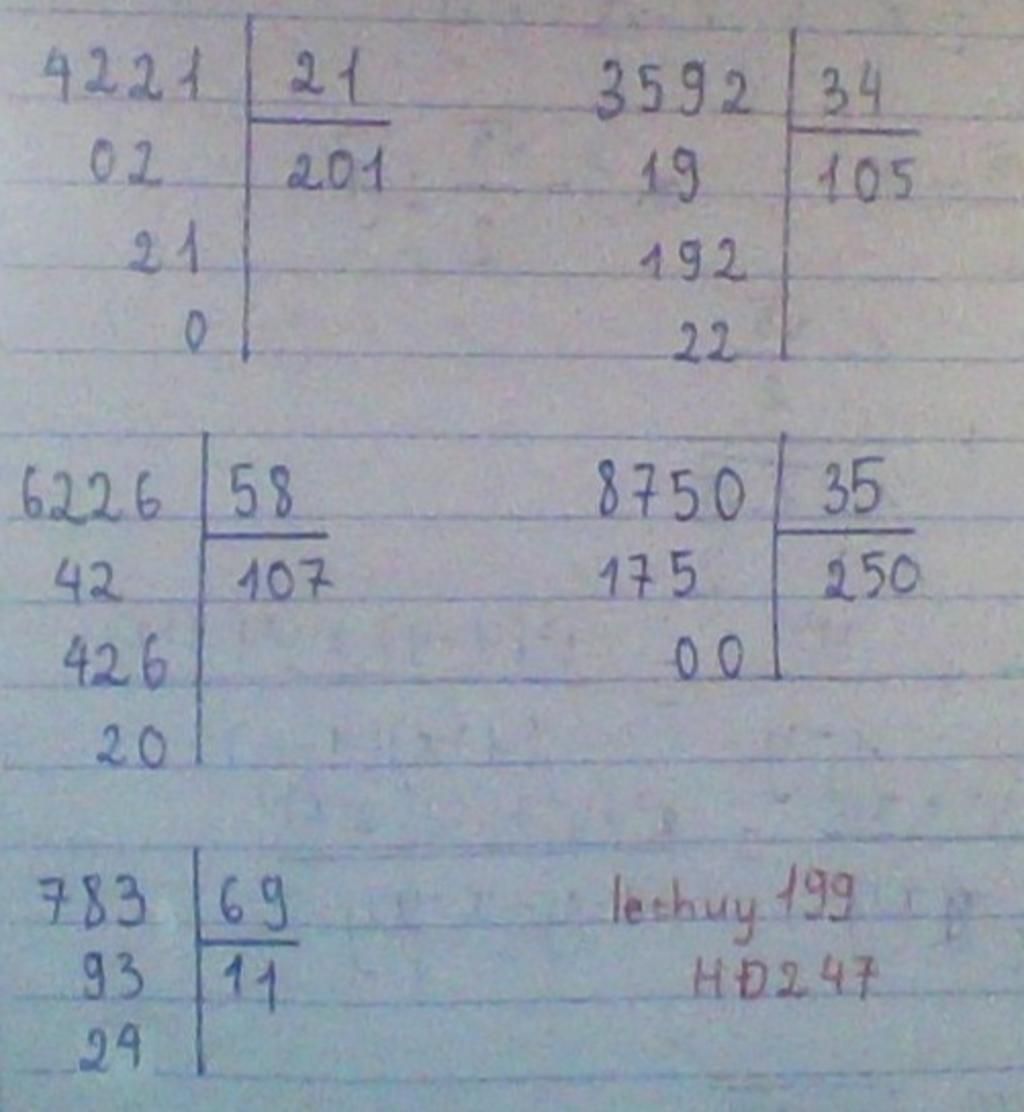 4221 21 3592 34
02 201 19 105
21 192
0 22
6226 58 8750 35
42 107 175 250
426 00
20
783 69 lechuy 199
93 11 HĐ247
24